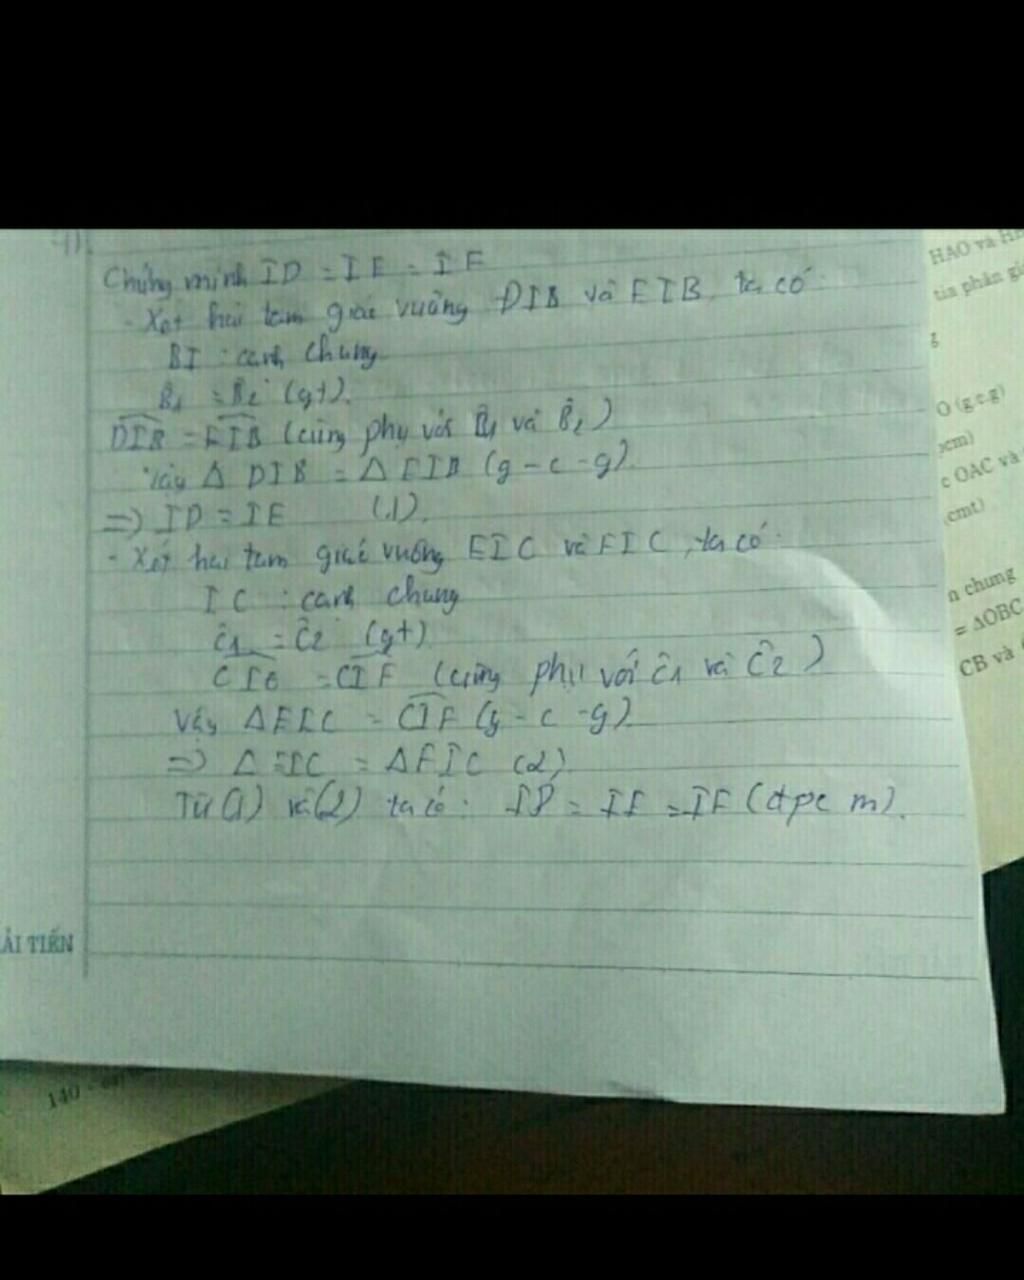 Chứng minh ID = IE = IF
- Xét hai tam giác vuông DIB và EIB, ta có:
BI : cạnh chung
B̂1 = B̂2 (gt).
DIB = EIB (cùng phụ với B̂1 và B̂2)
Vậy Δ DIB = Δ EIB (g - c - g)
=> ID = IE (1).
- Xét hai tam giác vuông EIC và FIC, ta có:
IC : cạnh chung
Ĉ1 = Ĉ2 (gt)
= CIF (cùng phụ với Ĉ1 và Ĉ2)
Vậy ΔEIC = CIF (g - c - g)
=> Δ EIC = ΔFIC (2)
Từ (1) và (2) ta có: ID = IE = IF (đpcm).
ẢI TIẾN
140
HAO và
tia phân gi
g
O (g.c.g)
cm)
c OAC và
cmt)
n chung
= ΔOBC
CB và